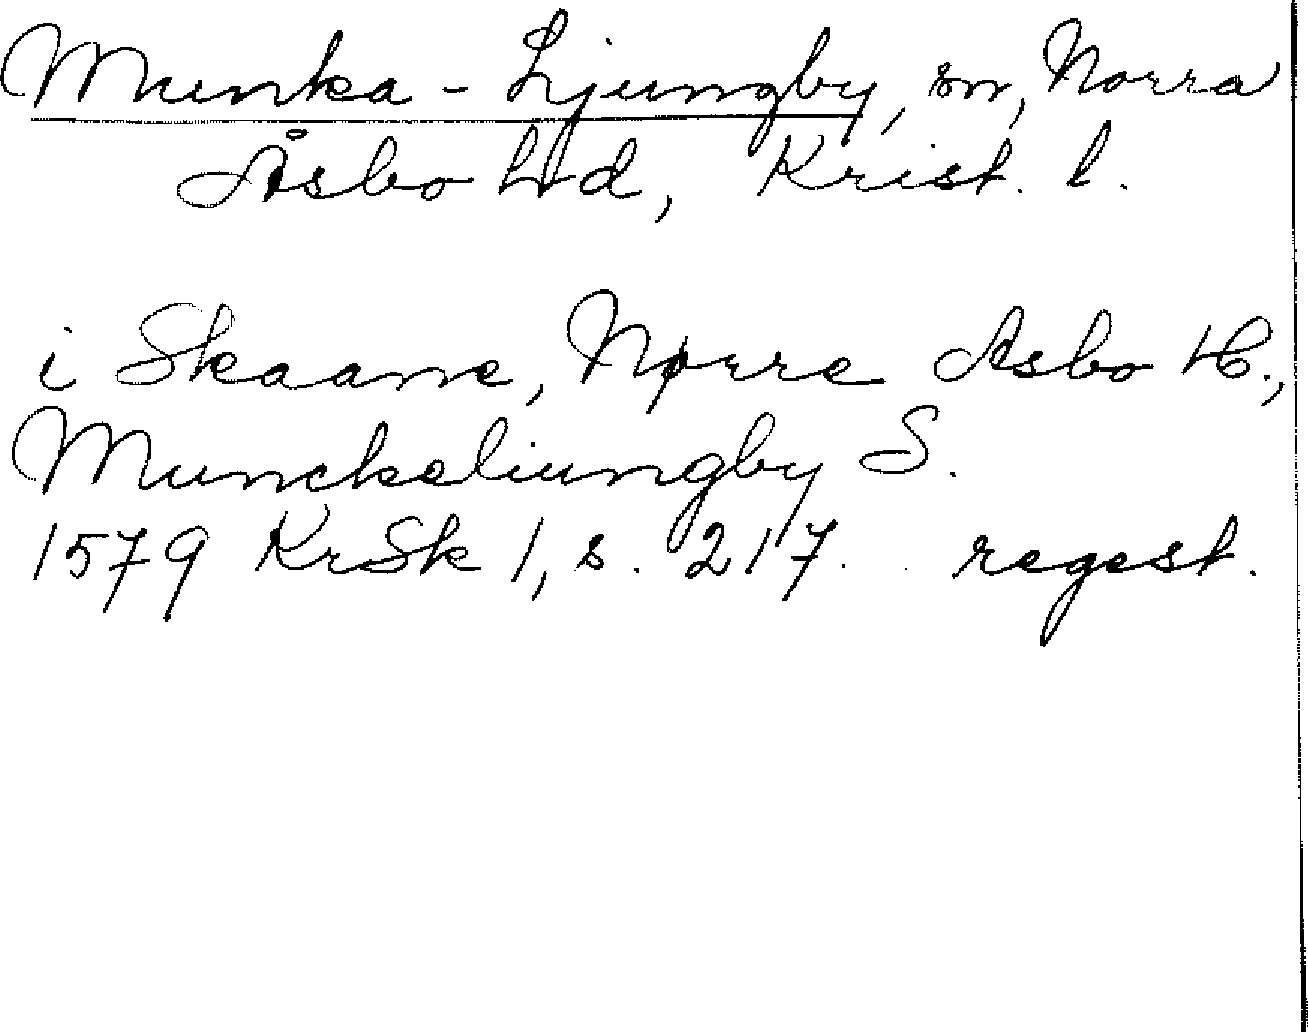 Munka-Ljungby, sn, Norra
Åsbo hd, Krist. l.
i Skaane, Nørre Asbo H.,
Munckeliungby S.
1579 KrSk 1, s. 217. regest.